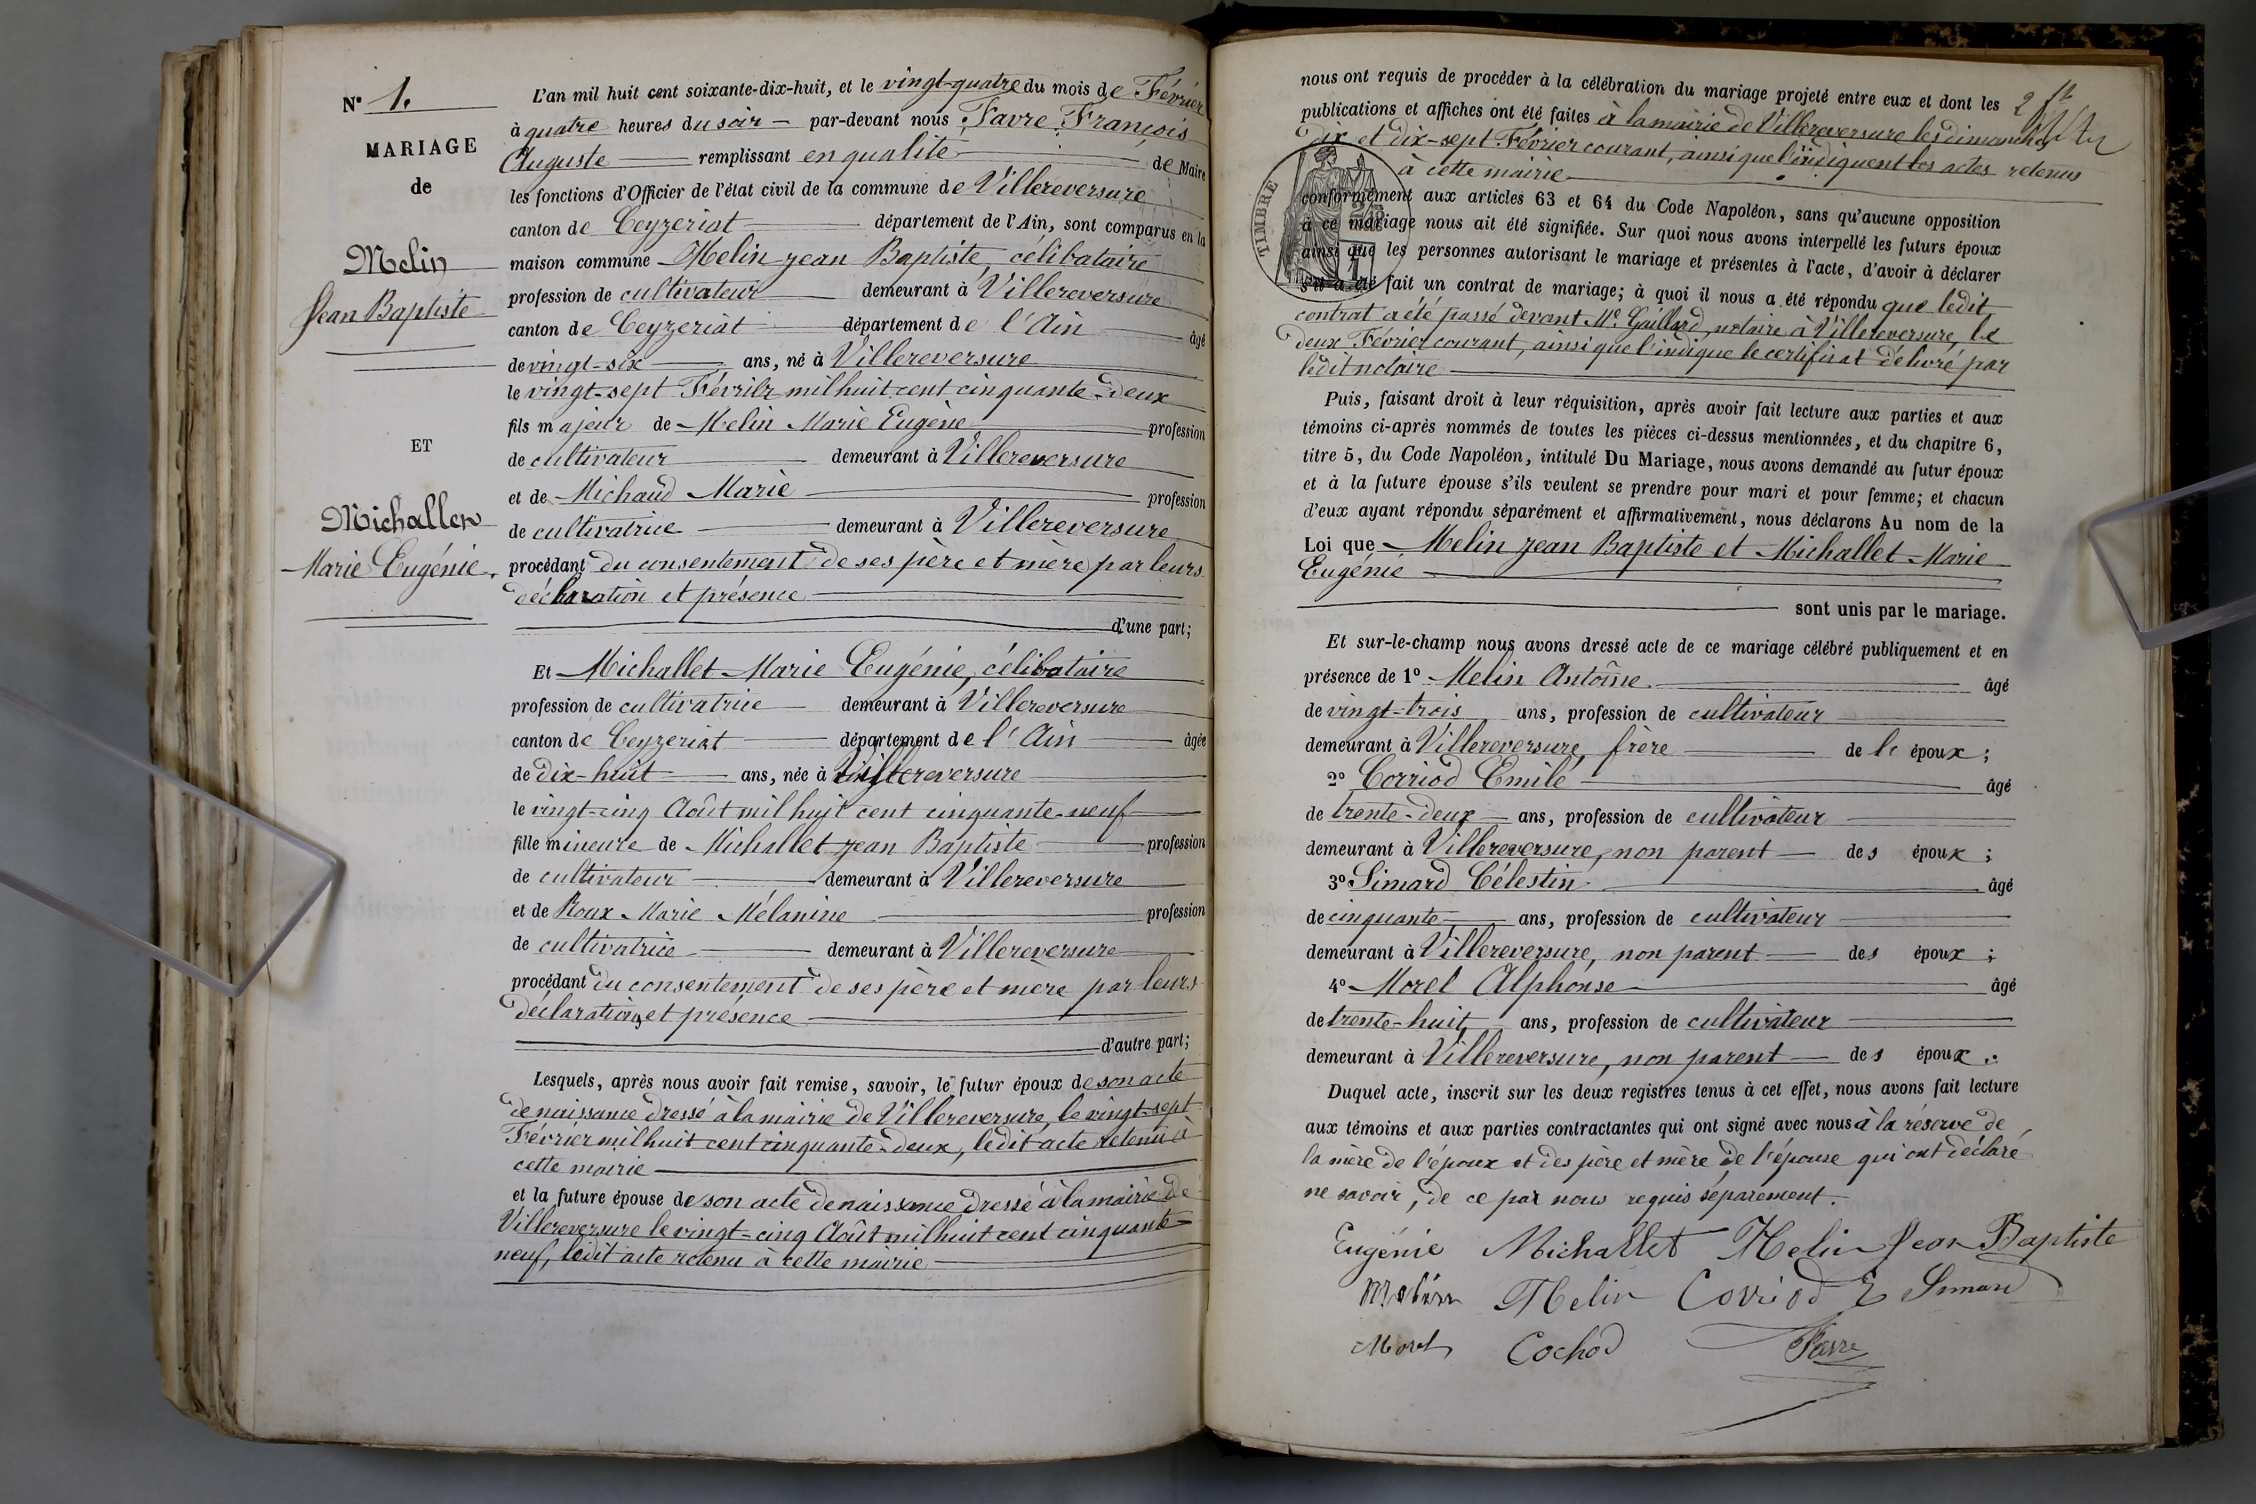 N° 1.
MARIAGE
de
Melin
Jean Baptiste
ET
Michallet
Marie Eugénie.
L'an mil huit cent soixante-dix-huit, et le vingt-quatre du mois de Février
à quatre heures du soir par-devant nous Favre François
Auguste remplissant en qualité de Maire
les fonctions d'Officier de l'état civil de la commune de Villereversure
canton de Ceyzeriat département de l'Ain, sont comparus en la
maison commune Melin Jean Baptiste, célibataire
profession de cultivateur demeurant à Villereversure
canton de Ceyzeriat département de l'Ain âgé
de vingt-six ans, né à Villereversure
le vingt-sept Février mil huit cent cinquante-deux
fils majeur de Melin Marie Eugène profession
de cultivateur demeurant à Villereversure
et de Michaud Marie profession
de cultivatrice demeurant à Villereversure
procédant du consentement de ses père et mère par leurs
déclaration et présence
d'une part;
Et Michallet Marie Eugénie, célibataire
profession de cultivatrice demeurant à Villereversure
canton de Ceyzeriat département de l'Ain âgée
de dix-huit ans, née à Villereversure
le vingt-cinq Août mil huit cent cinquante-neuf
fille mineure de Michallet Jean Baptiste profession
de cultivateur demeurant à Villereversure
et de Roux Marie Mélanine profession
de cultivatrice demeurant à Villereversure
procédant du consentement de ses père et mère par leurs
déclarations et présence
d'autre part;
Lesquels, après nous avoir fait remise, savoir, le futur époux de son acte
de naissance dressé à la mairie de Villereversure, le vingt-sept
Février mil huit cent cinquante-deux, ledit acte retenu à
cette mairie
et la future épouse de son acte de naissance dressé à la mairie de
Villereversure le vingt-cinq Août mil huit cent cinquante-
neuf, ledit acte retenu à cette mairie
nous ont requis de procéder à la célébration du mariage projeté entre eux et dont les
publications et affiches ont été faites à la mairie de Villereversure les dimanches
dix et dix-sept Février courant, ainsi que l'indiquent les actes retenus
à cette mairie
TIMBRE
conformément aux articles 63 et 64 du Code Napoléon, sans qu'aucune opposition
à ce mariage nous ait été signifiée. Sur quoi nous avons interpellé les futurs époux
ainsi que les personnes autorisant le mariage et présentes à l'acte, d'avoir à déclarer
s'il a été fait un contrat de mariage; à quoi il nous a été répondu que ledit
contrat a été passé devant Me. Gaillard, notaire à Villereversure, le
deux Février courant, ainsi que l'indique le certificat délivré par
ledit notaire
Puis, faisant droit à leur réquisition, après avoir fait lecture aux parties et aux
témoins ci-après nommés de toutes les pièces ci-dessus mentionnées, et du chapitre 6,
titre 5, du Code Napoléon, intitulé Du Mariage, nous avons demandé au futur époux
et à la future épouse s'ils veulent se prendre pour mari et pour femme; et chacun
d'eux ayant répondu séparément et affirmativement, nous déclarons Au nom de la
Loi que Melin Jean Baptiste et Michallet Marie
Eugénie
sont unis par le mariage.
Et sur-le-champ nous avons dressé acte de ce mariage célébré publiquement et en
présence de 1° Melin Antoine âgé
de vingt-trois ans, profession de cultivateur
demeurant à Villereversure, frère de l' époux;
2° Corriod Emile âgé
de trente-deux ans, profession de cultivateur
demeurant à Villereversure, non parent des époux;
3° Simard Célestin âgé
de cinquante ans, profession de cultivateur
demeurant à Villereversure, non parent des époux;
4° Morel Alphonse âgé
de trente-huit ans, profession de cultivateur
demeurant à Villereversure, non parent des époux.
Duquel acte, inscrit sur les deux registres tenus à cet effet, nous avons fait lecture
aux témoins et aux parties contractantes qui ont signé avec nous à la réserve de
la mère de l'époux et des père et mère de l'épouse qui ont déclaré
ne savoir, de ce par nous requis séparement.
Eugénie Michallet Melin Jean Baptiste
Melin Melin Corriod E Simard
Morel Cochod Favre